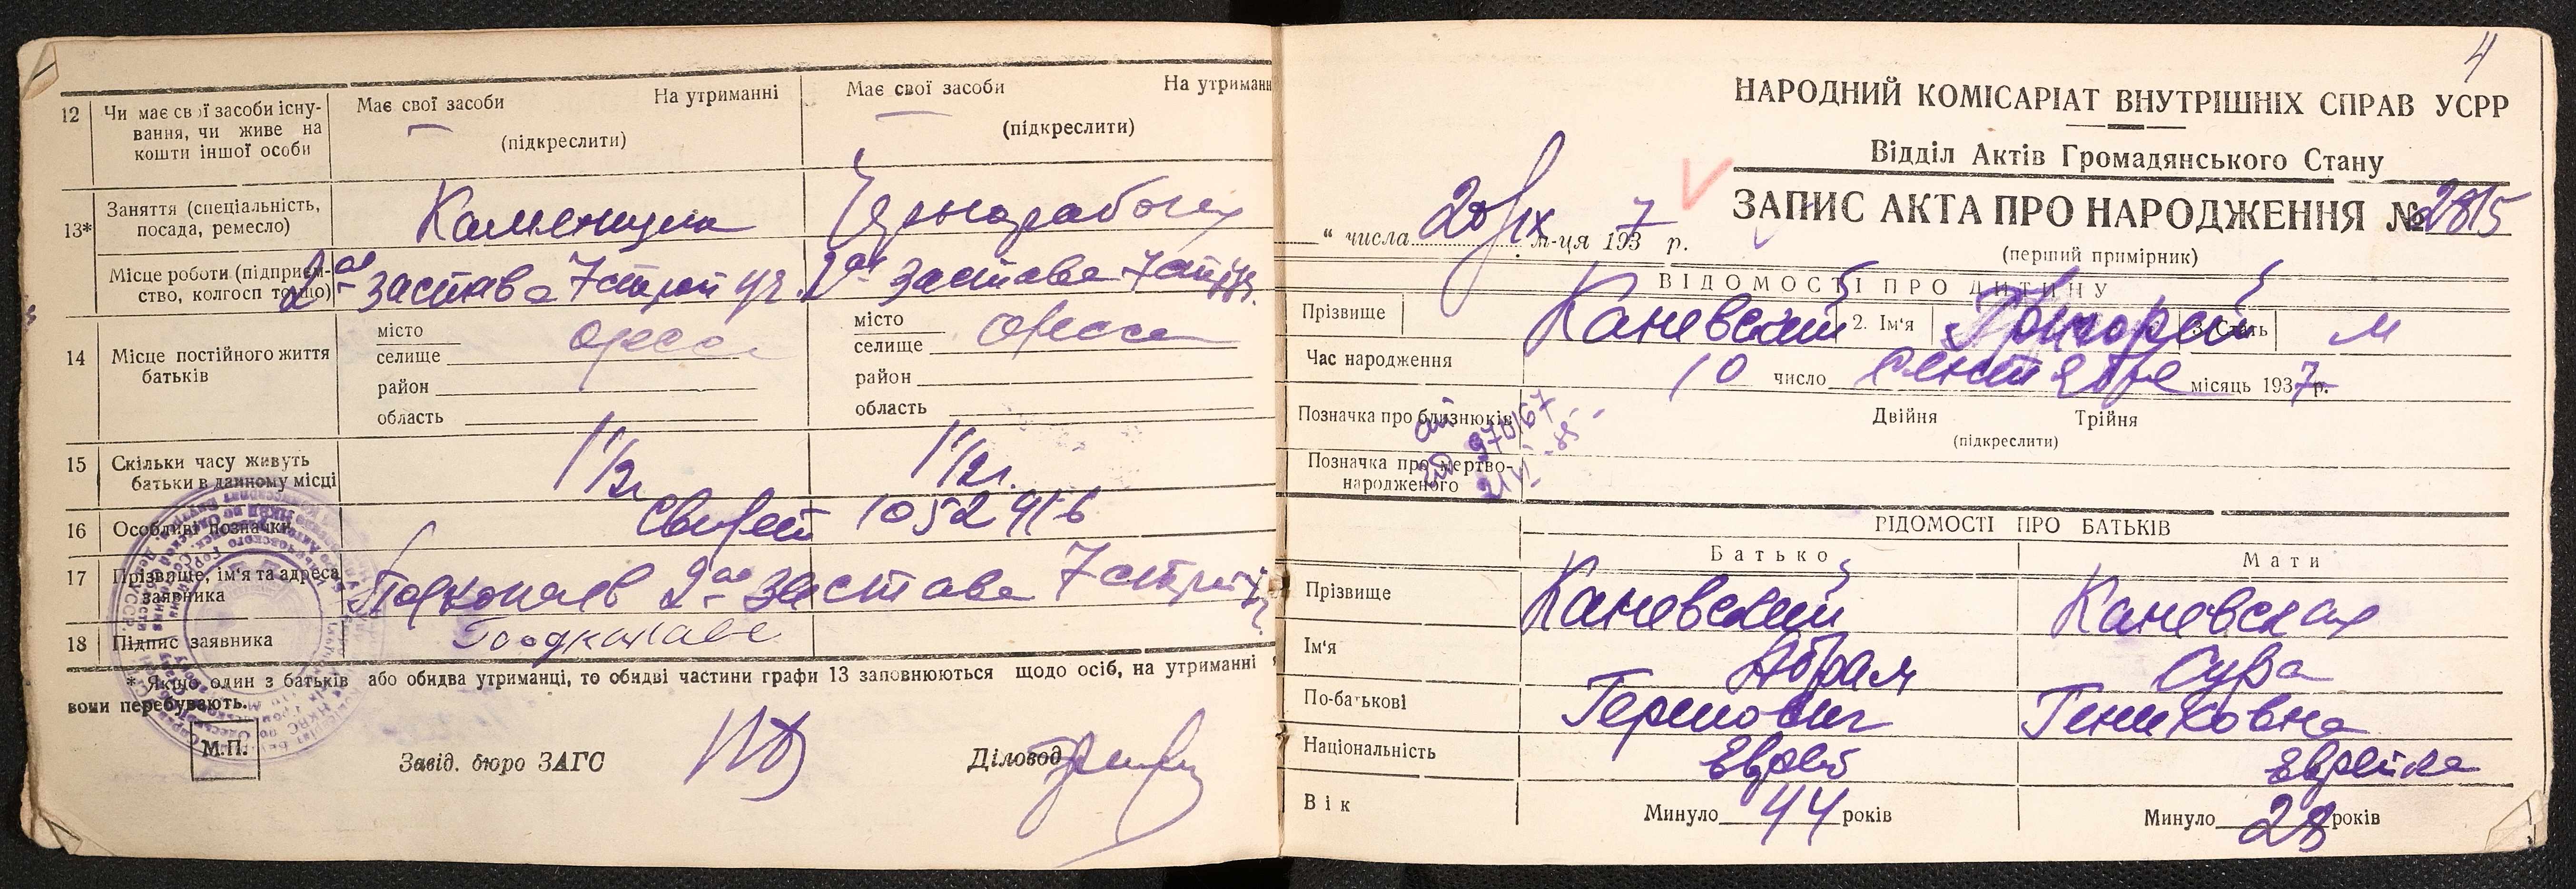 12 Чи має свої засоби існу-
вання, чи живе на
кошти іншої особи
Має свої засоби На утриманні
(підкреслити)
Має свої засоби На утриманн
(підкреслити)
13* Заняття (спеціальність,
посада, ремесло)
Каменщик
Чернорабочу
Місце роботи (підприєм-
ство, колгосп тощо)
2ая застава 7 строй уч.
2ая застава 7 строй уч.
14 Місце постійного життя
батьків
місто
селище Одесса
район
область
місто
селище Одесса
район
область
15 Скільки часу живуть
батьки в данному місці
1 1/2 г
1 1/2 г.
16 Особливі позначки
1052916
17 Прізвище, ім'я та адреса
заявника
Подкопаев 2ая застава 7 строй уч.
18 Підпис заявника
Подкопаев
* Якщо один з батьків або обидва утриманці, то обидві частини графи 13 заповнюються щодо осіб, на утриманні я
вони перебувають.
М.П.
Завід. бюро ЗАГС
Діловод
4
НАРОДНИЙ КОМІСАРІАТ ВНУТРІШНІХ СПРАВ УСРР
Відділ Актів Громадянського Стану
ЗАПИС АКТА ПРО НАРОДЖЕННЯ № 2815
" числа 20/IX м-ця 1937 р.
(перший примірник)
ВІДОМОСТІ ПРО ДИТИНУ
Прізвище Каневский 2. Ім'я Григорий 3. Стать М
Час народження 10 число сентября місяць 1937 р.
Позначка про близнюків
Двійня Трійня
(підкреслити)
970/67
Позначка про мертво-
народженого
ВІДОМОСТІ ПРО БАТЬКІВ
Батько Мати
Прізвище Каневский Каневская
Ім'я Абрам Сура
По-батькові Гершович Гениховна
Національність Еврей Еврейка
Вік Минуло 44 років Минуло 28 років